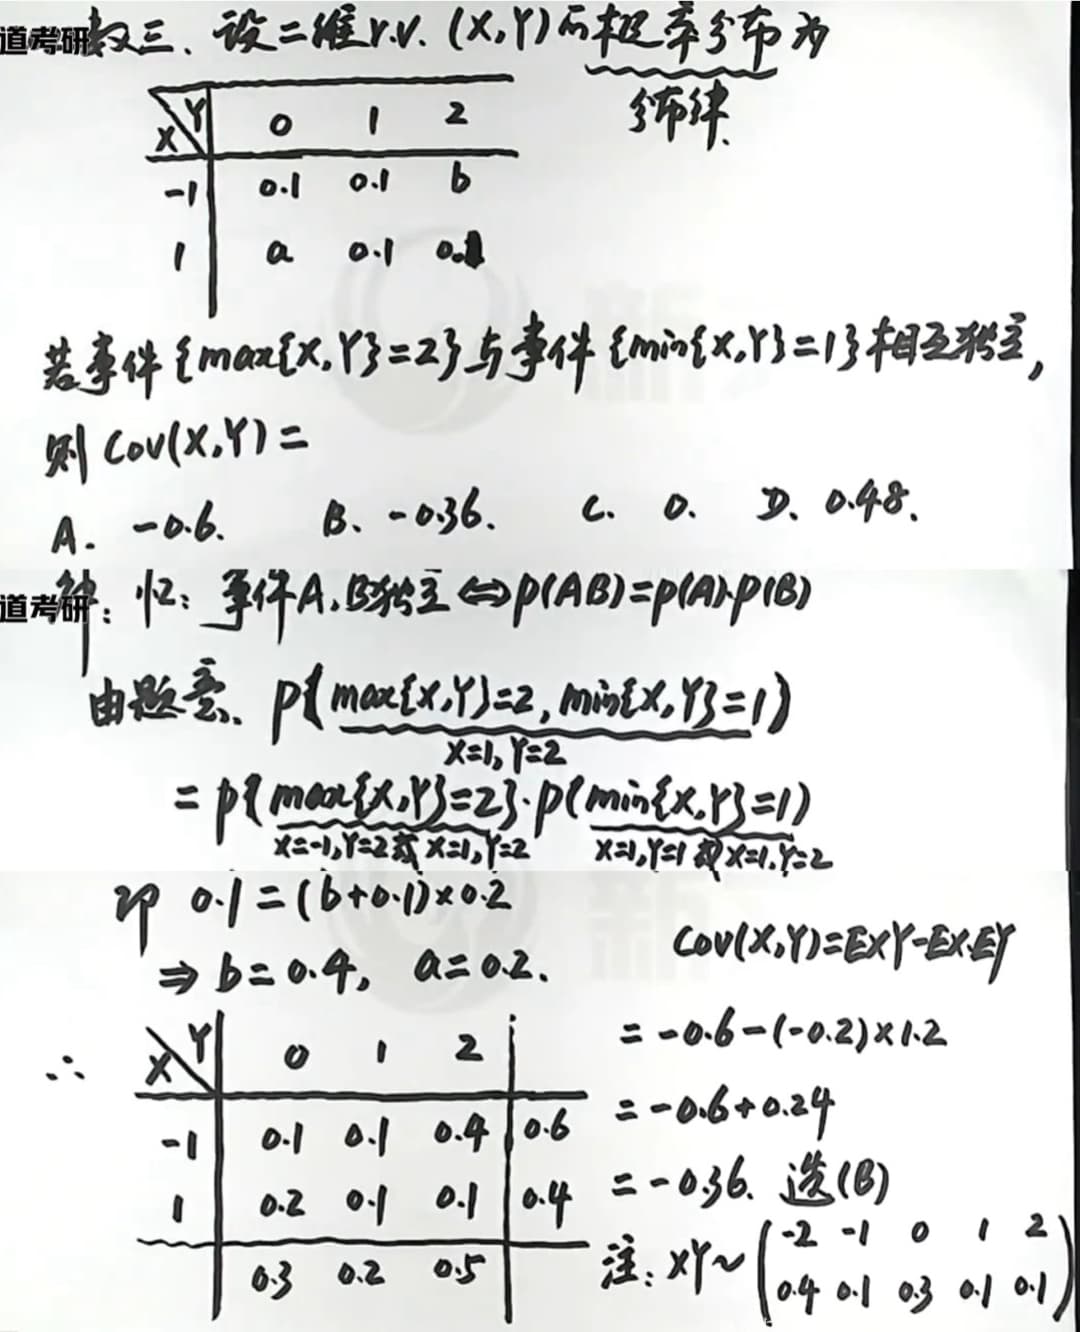 道考研
数三. 设二维r.v. (X,Y)的概率分布为
分布律.
X Y 0 1 2
-1 0.1 0.1 b
1 a 0.1 0.1
若事件{max{X,Y}=2}与事件{min{X,Y}=1}相互独立,
则 Cov(X,Y)=
A. -0.6. B. -0.36. C. 0. D. 0.48.
道考研
解: 忆: 事件A,B独立⇔P(AB)=P(A)·P(B)
由题意. P{max{X,Y}=2, min{X,Y}=1}
X=1, Y=2
=P{max{X,Y}=2}·P{min{X,Y}=1}
X=-1,Y=2或X=1,Y=2 X=1,Y=1或X=1.Y=2
即 0.1=(b+0.1)×0.2
⇒ b=0.4, a=0.2.
∴ X Y 0 1 2
-1 0.1 0.1 0.4 0.6
1 0.2 0.1 0.1 0.4
0.3 0.2 0.5
Cov(X,Y)=EXY-EX·EY
=-0.6-(-0.2)×1.2
=-0.6+0.24
=-0.36. 选(B)
注: XY~(-2 -1 0 1 2
0.4 0.1 0.3 0.1 0.1)